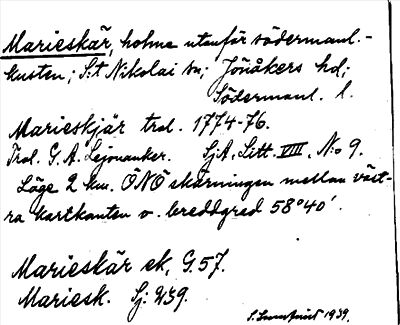 Marieskär, holme utanför södermanl.-
kusten; S:t Nikolai sn; Jönåkers hd;
Södermanl. l.
Marieskjär trol. 1774-76.
Trol. G. A. Lejonanker. SjA, Litt. VIII, N:o 9.
Läge 2 km. ÖNÖ skärningen mellan väst-
ra kartkanten o. breddgred 58°40'.
Marieskär ek, G.57.
Mariesk. Sj:
1939.